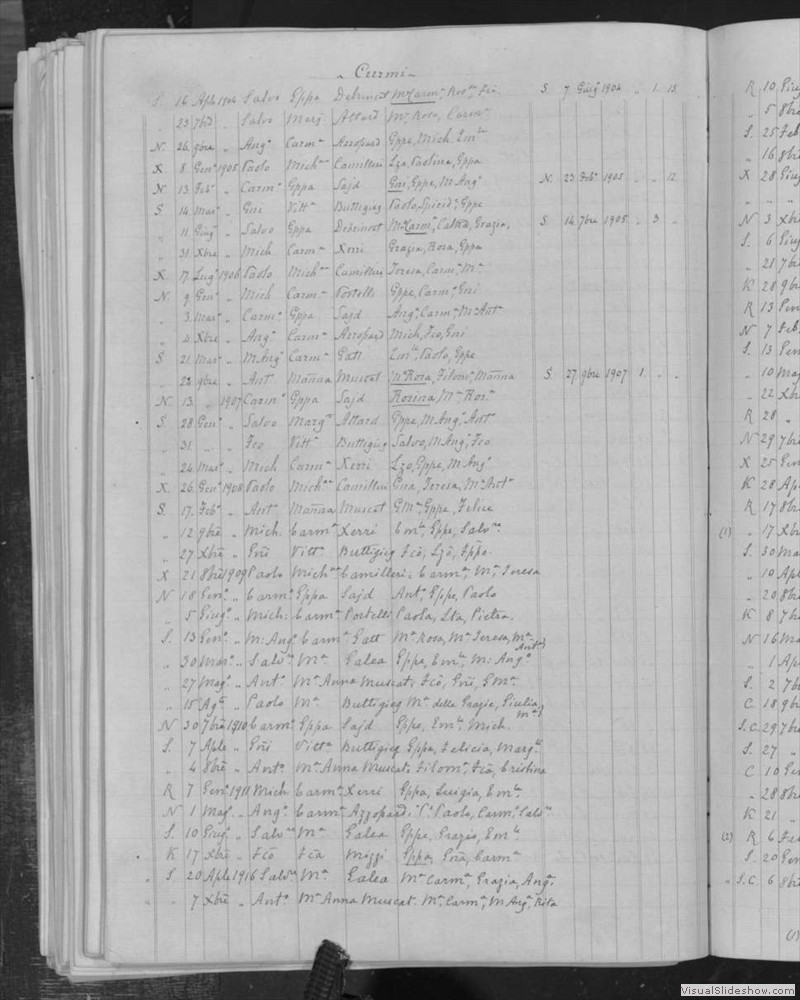 Curmi
S. 16 Aple 1904 Salvo Gppa Debrincat M.Carm.a S 7 Giug.o 1904 1. 13.
" 23 7bre " Salvo Marg Attard M.a Rosa, Carm.a
N. 26 9bre " Ang.o Carm.a Azzopard Gppe, Mich, Em.le
X. 8 Gen.o 1905 Paolo Mich.na Camilleri Lza, Paolina, Gppa
N 13 Feb.o " Carm.o Gppa Sajd Gni, Gppe, M.Ang.o N. 23 Feb.o 1905 " " 12
S 14 Mar.o " Gni Vitt.a Buttigieg Paolo, Spirid.e, Gppe
" 11 Giug.o " Salvo Gppa Debrincat M.Carm.a, Grazia, S 14 7bre 1905 " 3 "
" 31 Xbre " Mich Carm.a Xerri Grazia, Rosa, Gppa
X. 17 Lug.o 1906 Paolo Mich.na Camilleri Teresa, Carm.a, M.a
N. 9 Gen.o " Mich Carm.a Portelli Gppe, Carm.o, Gni
" 3 Mar.o " Carm.o Gppa Sajd Ang.o, Carm.o, M.Ant.o
" 4 Xbre " Ang.o Carm.a Azzopard Mich, Fco, Gni
S 21 Mar.o " M.Ang.o Carm.a Gatt Em.le, Paolo, Gppe
" 22 9bre " Ant.o Marnna Muscat M.a Rosa, Filom.a, Marnna S. 27 9bre 1907 1. " "
N. 13 " 1907 Carm.o Gppa Sajd Rosina, M.a Ros.a
S. 28 Gen.o " Salvo Marg.ta Attard Gppe, M.Ang.o, Ant.o
" 31 " " Fco Vitt.a Buttigieg Salvo, M.Ang.o, Fco
" 24 Mar.o " Mich Carm.a Xerri Lzo, Gppe, M.Ang.o
X. 26 Gen.o 1908 Paolo Mich.na Camilleri Gna, Teresa, M.a Ant.a
S. 17 Feb.o " Ant.o Marnna Muscat G.M.a, Gppe, Felice
" 12 9bre " Mich. Carm.a Xerri Em.le, Gppe, Salv.re
" 27 Xbre " Gni Vitt.a Buttigieg Fco, Lzo, Gppe
X 21 8bre 1909 Paolo Mich.na Camilleri Carm.a, M.a, Teresa
N 18 Gen.o " Carm.o Gppa Sajd Ant.o, Gppe, Paolo
" 5 Giug.o " Mich: Carm.a Portelli Paola, Lta, Pietra.
S. 13 Gen.o " M: Ang.o Carm.a Gatt M.a Rosa, M.a Teresa, M.a Ant.a)
" 30 Mar.o " Salv.re M.a Galea Gppe, Em.le, M: Ang.o
" 27 Mag.o " Ant.o M.a Anna Muscat, Fco, Gni, G.M.a
" 15 Ag.o " Paolo M.a Buttigieg M.a delle Grazie, Giulia, M.a)
N 30 7bre 1910 Carm.o Gppa Sajd Gppe, Em.le, Mich.
S. 7 Aple " Gni Vitt.a Buttigieg Gppa, Felicia, Marg.ta
" 4 8bre " Ant.o M.a Anna Muscat, Filom.a, Fca, Cristina
R 7 Gen.o 1911 Mich Carm.a Xerri Gppa, Luigia, Em.la
N 1 Mag.o " Ang.o Carm.a Azzopardi Paolo, Carm.o, Salv.re
S. 10 Giug.o " Salv.re M.a Galea Gppe, Grazio, Em.le
K 17 Xbre " Fco Fca Mizzi Gppa, Gna, Carm.a
" S 20 Aple 1916 Salv.re M.a Galea M.a Carm.a, Grazia, Ang.a
" 7 Xbre " Ant.o M.a Anna Muscat. M.a Carm.a, M.Ang.a, Rita
R 10 Giug
" 5 8bre
S. 25 Feb
" 16 8br
X 28 Giug
" " "
N 3 Xbr
S. 6 Giug
" 21 7b
K 28 9br
R 13 Gen
N 7 Feb.
S. 13 Gen
" 10 Mag
" 22 Xbr
R 28 "
N 29 7br
X 25 Gen
K 28 Ap
R 17 8br
(1) " 17 Xb
S. 30 Ma
" 10 Apl
" 20 8br
K 8 7b
N 16 Ma
" 1 Ap
S. 2 7b
C 18 9b
S.C. 29 7br
S. 27 "
C 10 Gen
" 28 8br
K 21 "
(2) R 6
S. 20 Gen
" S.C 6 8br
VisualSlideshow.com